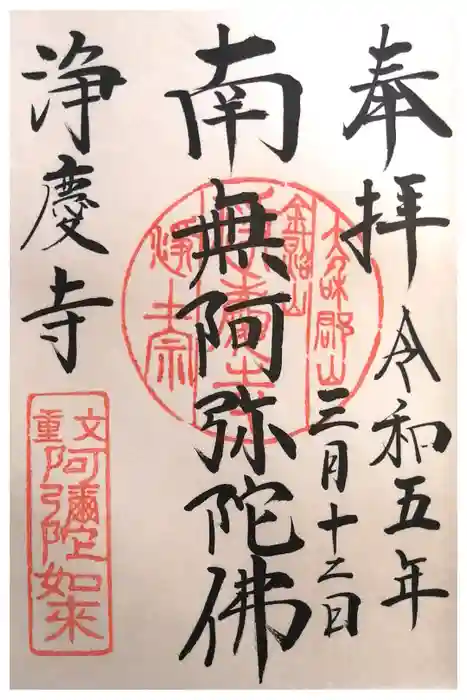 奉拝
令和五年
三月十二日
南無阿弥陀佛
浄慶寺
大和郡山
金銘山
浄慶寺
浄土宗
重文
阿彌陀如来